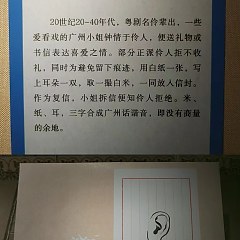 20世纪20-40年代，粤剧名伶辈出，一些
爱看戏的广州小姐钟情于伶人，便送礼物或
书信表达喜爱之情。部分正派伶人拒不收
礼，同时为避免留下痕迹，用白纸一张，写
上耳朵一双，取一撮白米，一同放入信封，
作为复信，小姐拆信便知伶人拒绝。米、
纸、耳，三字合成广州话谐音，即没有商量
的余地。